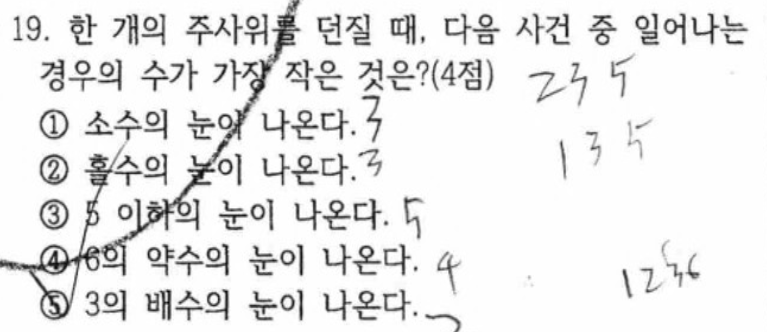 19. 한 개의 주사위를 던질 때, 다음 사건 중 일어나는
경우의 수가 가장 작은 것은?(4점)
2 3 5
① 소수의 눈이 나온다. 3
② 홀수의 눈이 나온다. 3
1 3 5
③ 5 이하의 눈이 나온다. 5
④ 6의 약수의 눈이 나온다. 4
1 2 3 6
⑤ 3의 배수의 눈이 나온다. 2